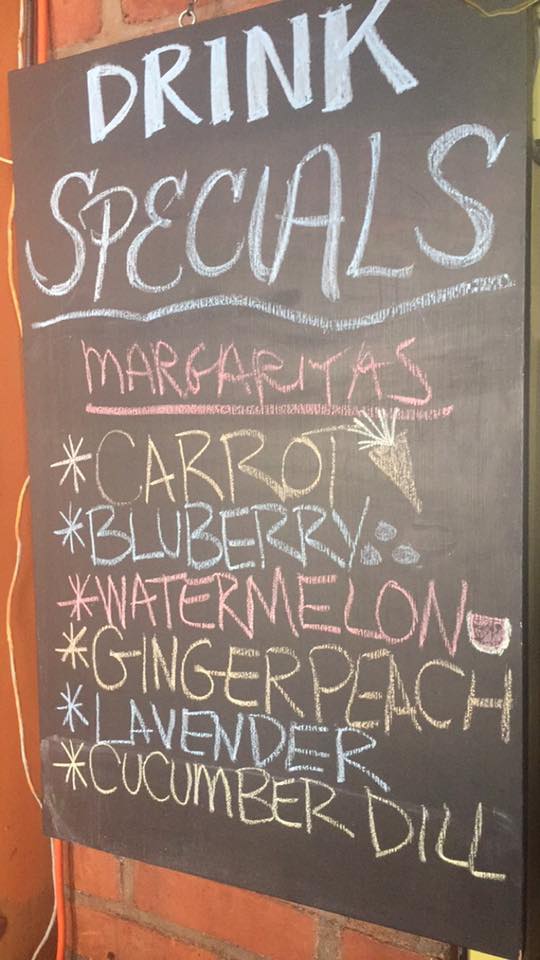 DRINK
SPECIALS
MARGARITAS
*CARROT
*BLUBERRY
*WATERMELON
*GINGER PEACH
*LAVENDER
*CUCUMBER DILL